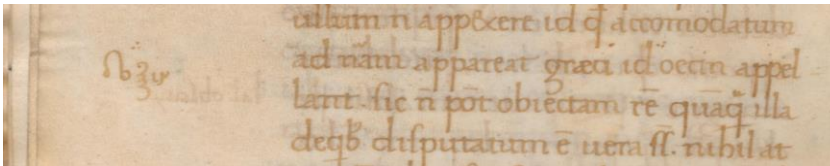 ullum n̄ app&ere id q̄ accomodatum
ad nām appareat græci id oecin appel
lant. sic n̄ pōt obiectam rē quāq̄ illa
deqb disputatum ē uera ss̄. nihil at